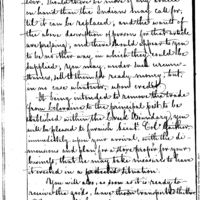 ever, should there be more of any article
on hand than the Indians may call for,
'til it can be replaced, and that the want of
the above description of persons for that article
are pressing, and there should appear to you
to be no other way, in which they could be
supplied, you may, under such circum-
stances, sell it them for ready money; but,
in no case whatever, upon credit.
It being intended to remove the trade
from Colerain to the principal post to be
established within the Creek Boundary, you
will be pleased to furnish Lieut. Col. Gaither,
immediately upon your arrival, with the di-
mensions and plan for a store proper for your
business, that he may take measures to have
it erected in a protected situation.
You will also, as soon as it is ready to
receive the goods, have them transported thither